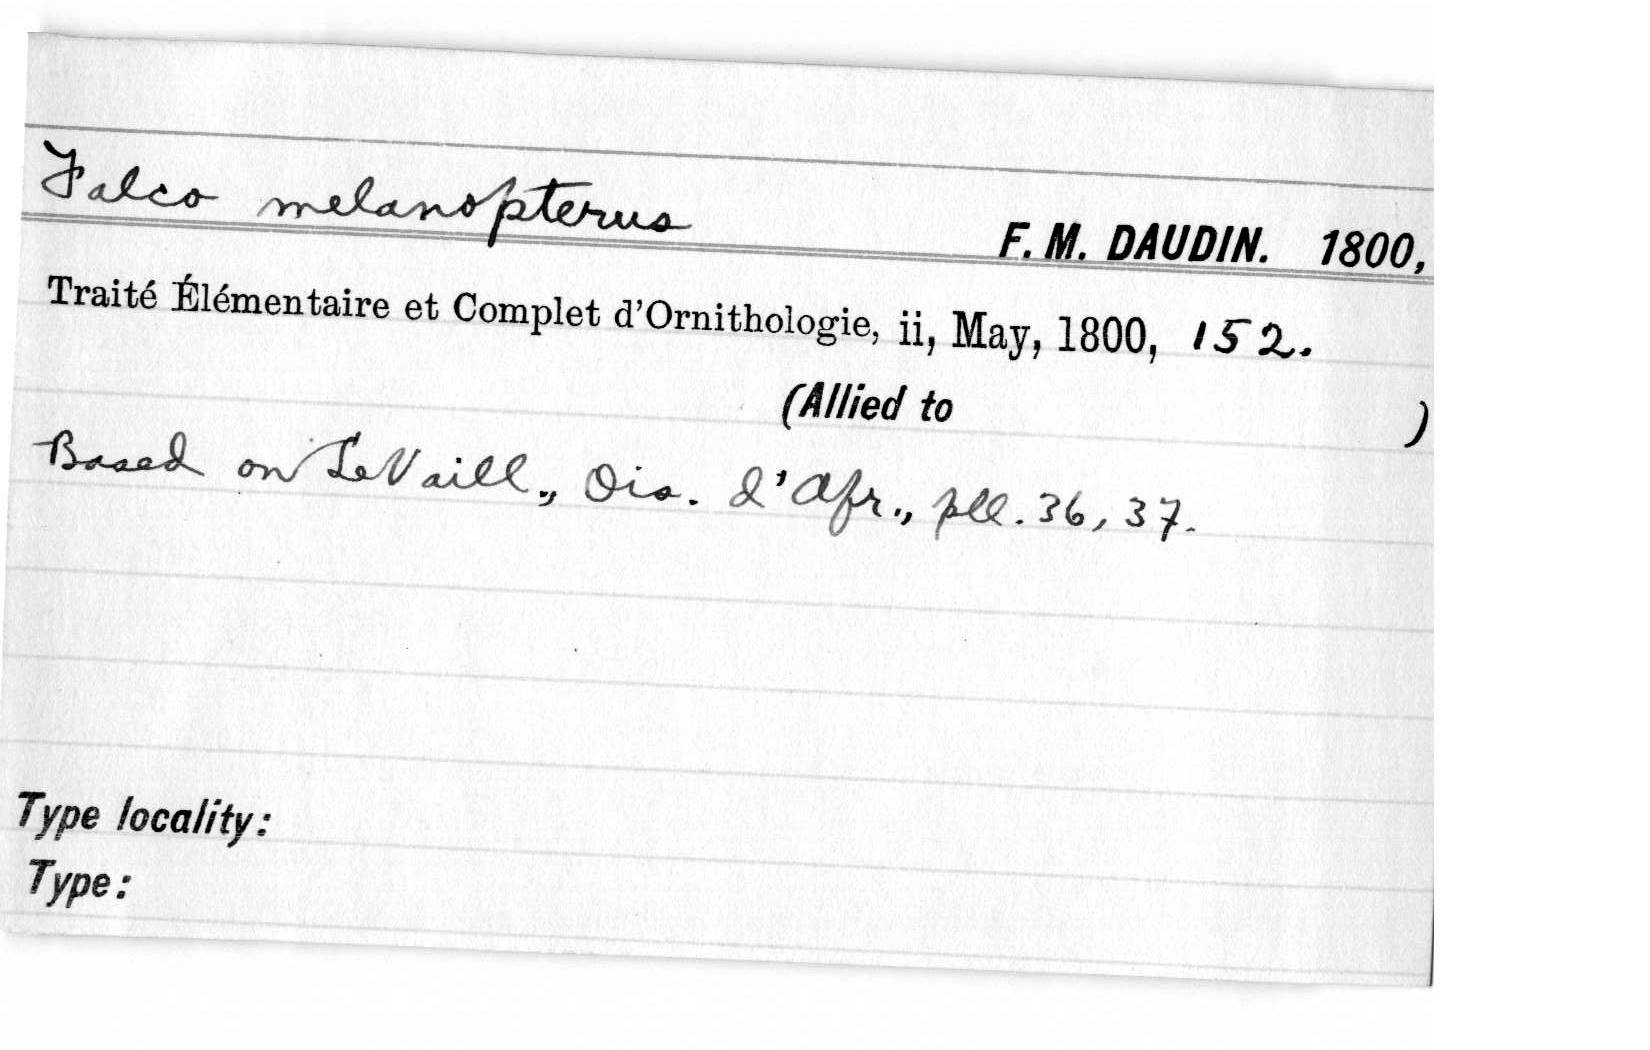 Falco melanopterus
F. M. DAUDIN. 1800,
Traité Élémentaire et Complet d'Ornithologie, ii, May, 1800, 152.
(Allied to )
Based on LeVaill., Ois. d'Afr., pll. 36, 37.
Type locality:
Type: